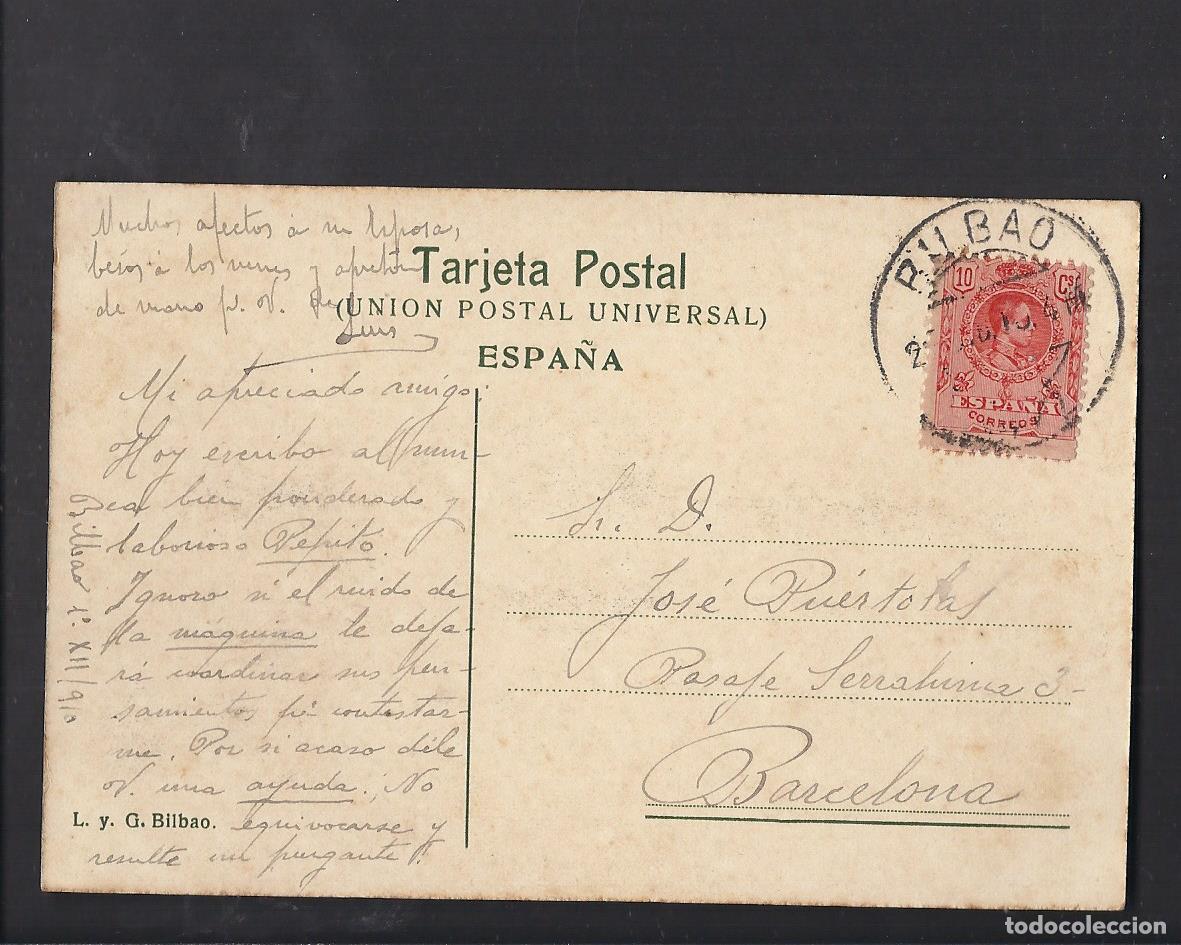 Tarjeta Postal
(UNION POSTAL UNIVERSAL)
ESPAÑA
BILBAO
10 Cs
ESPAÑA
CORREOS
Mi apreciado amigo:
Hoy escribo al nun-
ca bien ponderado y
laborioso Pepito.
Ignoro si el ruido de
la máquina le deja-
rá coordinar sus pen-
samientos pª contestar-
me. Por si acaso déle
V. una ayuda. ¡No
equivocarse y
resulte un purgante!
Muchos afectos á su esposa,
besos á los nenes y apretón
de mano p. V. De
Luis
Bilbao 1º. XII/910
L. y. G. Bilbao.
Sr. D.
José Puértolas
Pasaje Serrahima 3-
Barcelona
todocoleccion